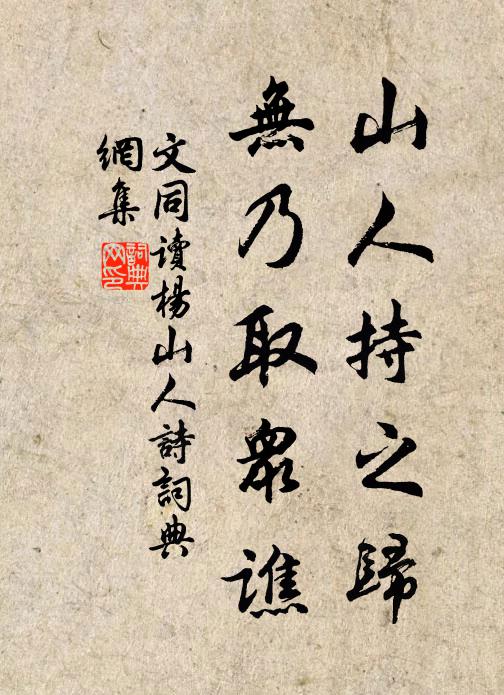 山人持之歸
無乃取眾譙
文同讀楊山人詩詞典
網集
詞典网印